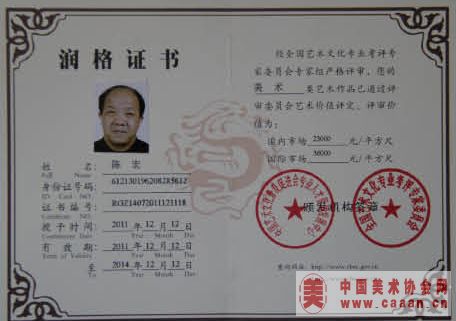 润格证书
姓名 陈宏
Full Name
身份证号码 612130196208285612
ID NO.
证书编号 ROZ14072011121118
Certificate NO.
授予时间 2011年12月12日
Year Month Day
有效期 2011年12月12日
Term of Validity Year Month Day
至 2014年12月12日
To Year Month Day
经全国艺术文化专业考评专
家委员会专家组严格评审,您的
美术 类艺术作品已通过评
审委员会艺术价值评定,评审价
值为:
国内市场 25000 元/平方尺
国际市场 38000 元/平方尺
颁发机构盖章
查询网址:http://www.
美 中国美术协会网
www.caaan.cn